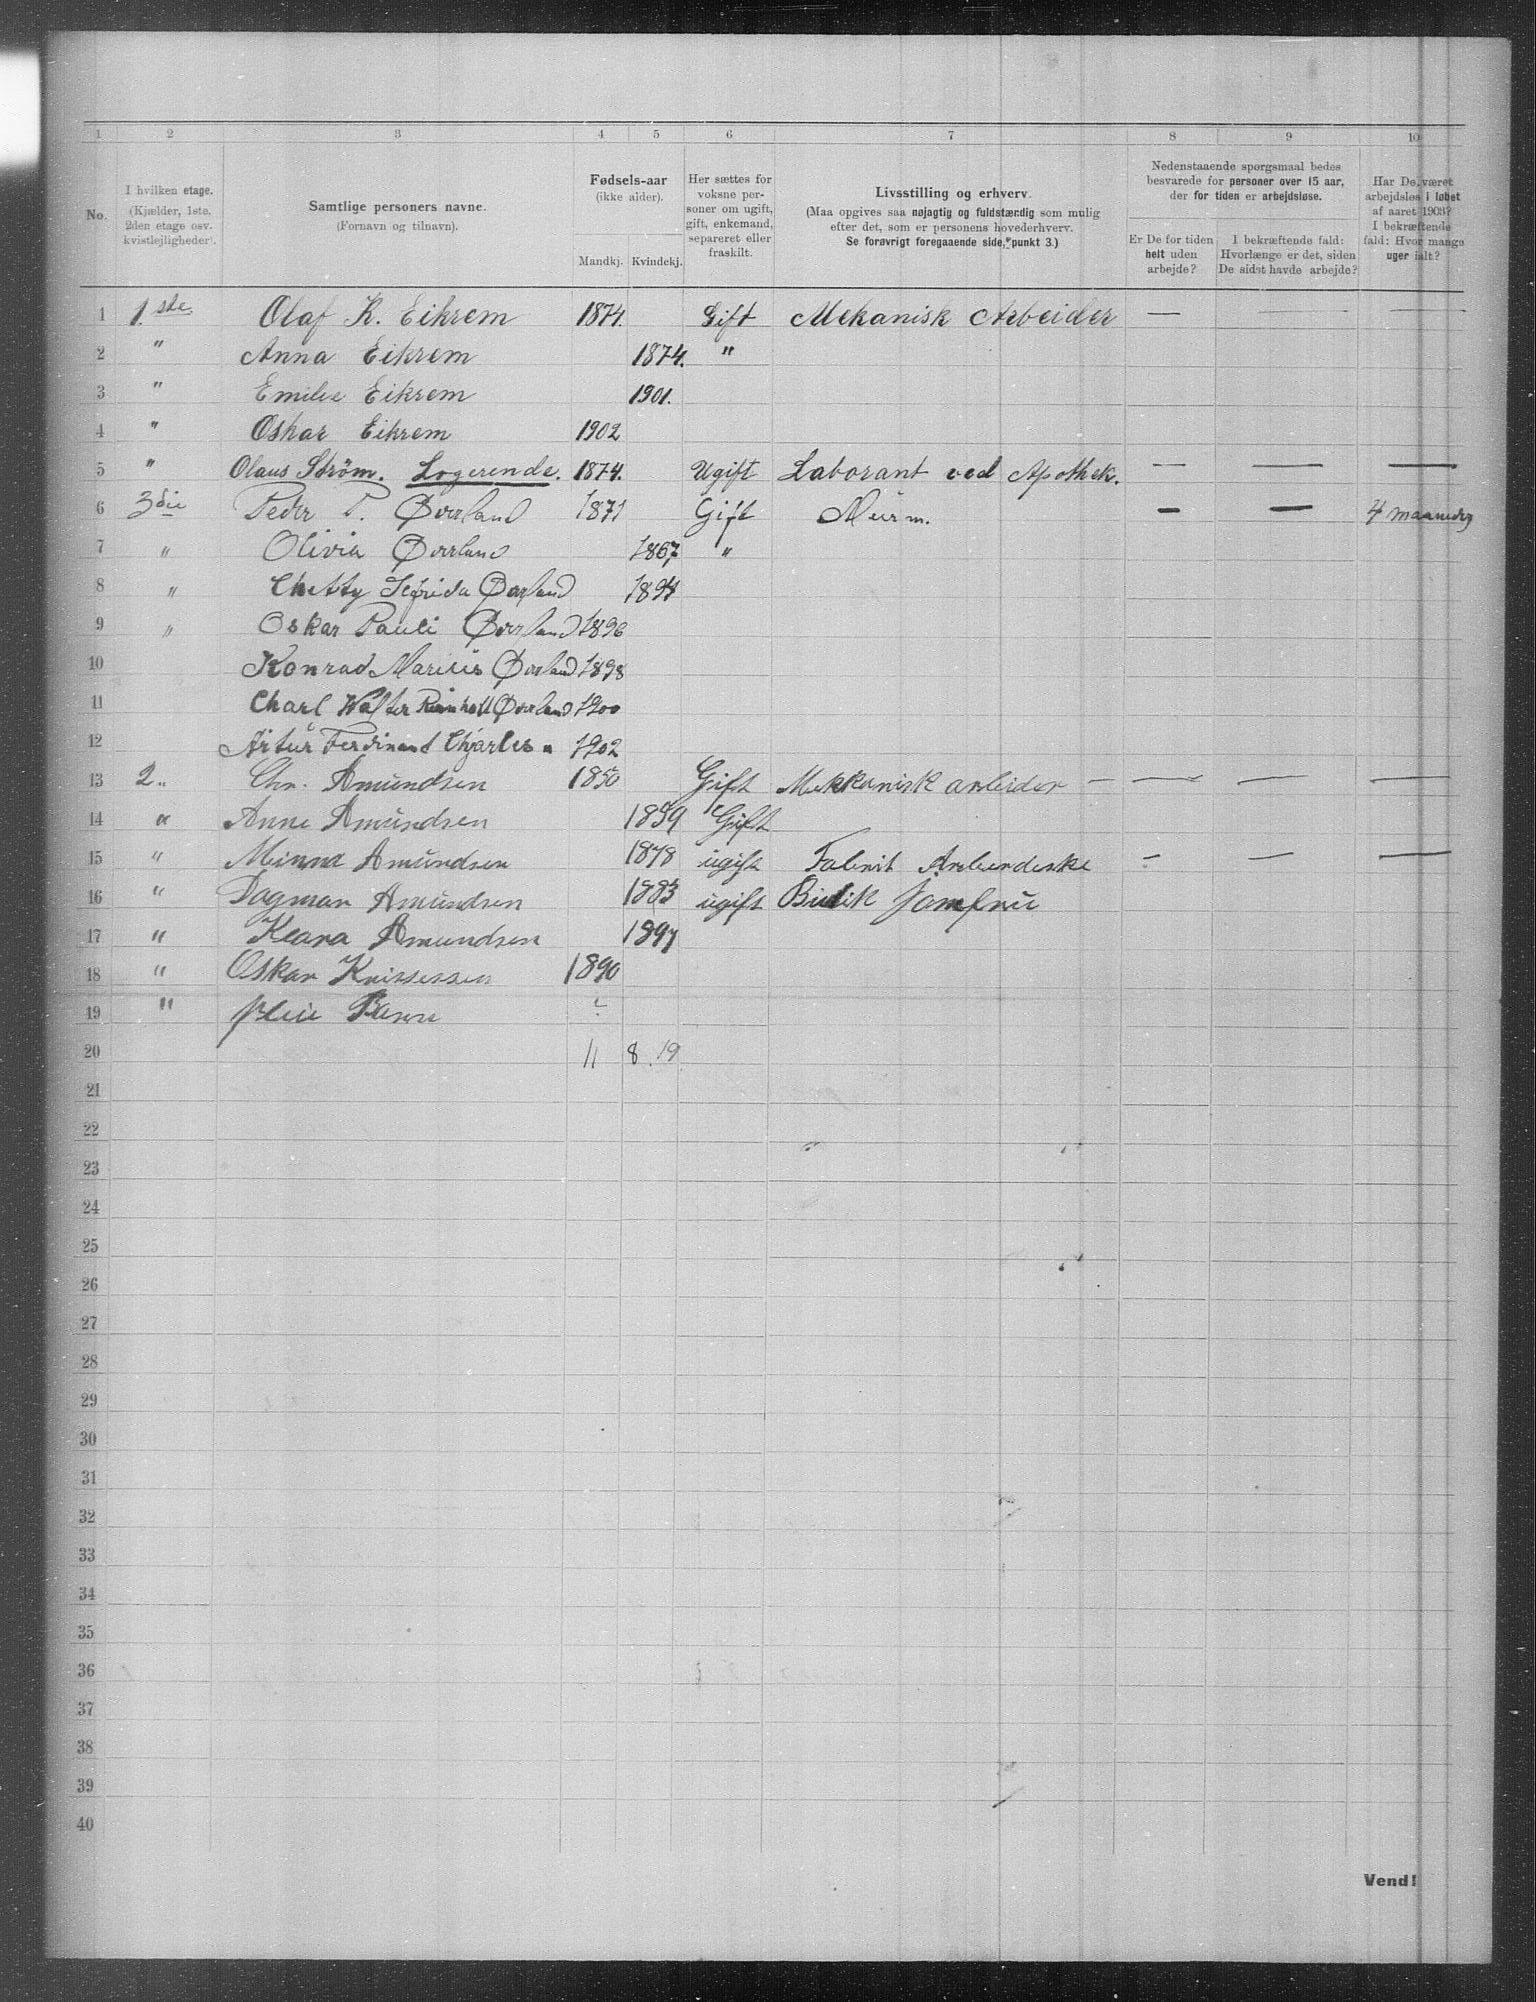 1 2 3 4 5 6 7 8 9 10
No.
I hvilken etage.
(Kjælder, 1ste,
2den etage osv.
kvistlejligheder).
Samtlige personers navne.
(Fornavn og tilnavn).
Fødsels-aar
(ikke alder).
Mandkj. Kvindekj.
Her sættes for
voksne per-
soner om ugift,
gift, enkemand,
separeret eller
fraskilt.
Livsstilling og erhverv.
(Maa opgives saa nøjagtig og fuldstændig som mulig
efter det, som er personens hovederhverv.
Se forøvrigt foregaaende side, punkt 3.)
Nedenstaaende spørgsmaal bedes
besvarede for personer over 15 aar,
der for tiden er arbejdsløse.
Er De for tiden
helt uden
arbejde?
I bekræftende fald:
Hvorlænge er det, siden
De sidst havde arbejde?
Har De været
arbejdsløs i løbet
af aaret 1903?
I bekræftende
fald: Hvor mange
uger ialt?
1 1.ste. Olaf K. Eikrem 1874. Gift Mekanisk Arbeider — — —
2 " Anna Eikrem 1874. "
3 " Emilie Eikrem 1901.
4 " Oskar Eikrem 1902
5 " Olaus Strøm. Logerende. 1874. Ugift Laborant ved Apothek. — — —
6 3die Peder P. Øverland 1871 Gift Murm. — — 4 maaneder
7 " Olivia Øverland 1867 "
8 " Chetty Øverland 1894
9 " Oskar Pauli Øverland 1896
10 Konrad Marius Øverland 1898
11 Charl Walter Reinholt Øverland 1900
12 Artur Ferdinand Chjarles " 1902
13 2 " Chr. Amundsen 1850 Gift Mekkanisk arbeider — — — —
14 " Anne Amundsen 1859 Gift
15 " Minna Amundsen 1878 ugift Fabrik Arbeiderske — — —
16 " Dagmar Amundsen 1883 ugift Butik Jomfru
17 " Klara Amundsen 1897
18 " Oskar 1890
19 "
20 11 8 . 19
21
22
23
24
25
26
27
28
29
30
31
32
33
34
35
36
37
38
39
40
Vend!